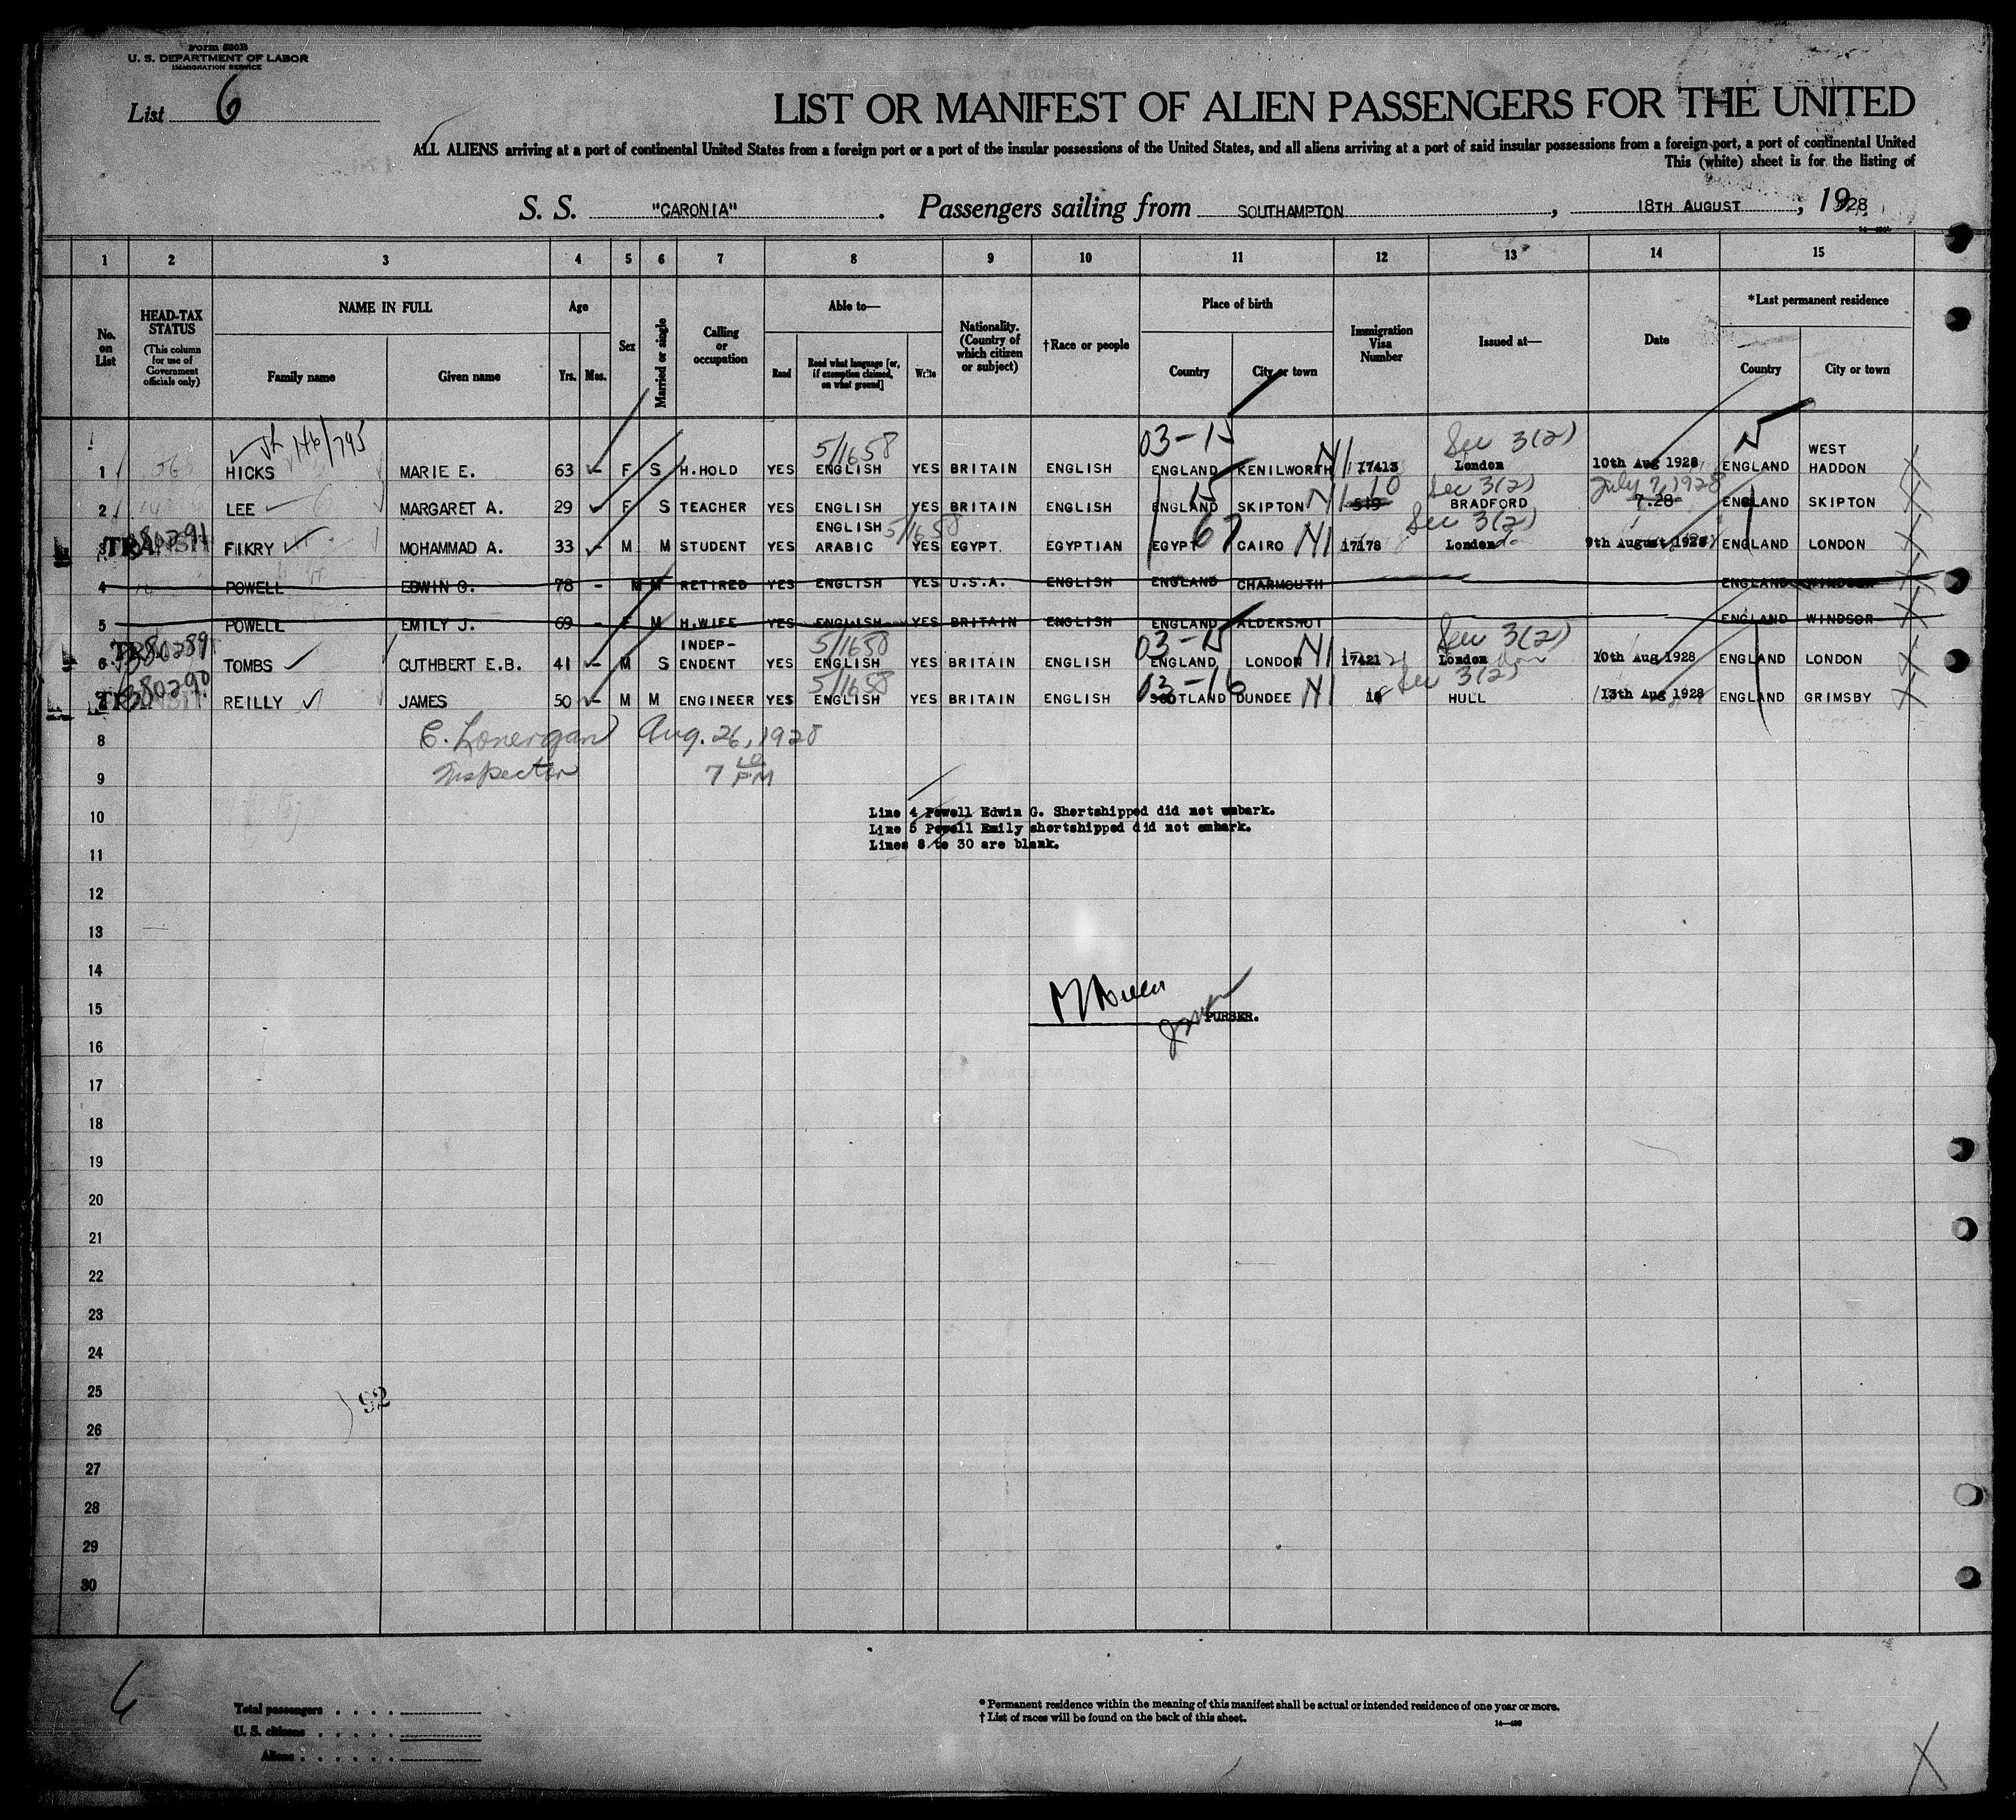 Form 500B
U. S. DEPARTMENT OF LABOR
IMMIGRATION SERVICE
List 6
LIST OR MANIFEST OF ALIEN PASSENGERS FOR THE UNITED
ALL ALIENS arriving at a port of continental United States from a foreign port or a port of the insular possessions of the United States, and all aliens arriving at a port of said insular possessions from a foreign port, a port of continental United
This (white) sheet is for the listing of
S. S. "CARONIA" . Passengers sailing from SOUTHAMPTON , 18TH AUGUST , 1928
1 2 3 4 5 6 7 8 9 10 11 12 13 14 15
No. on List
HEAD-TAX STATUS (This column for use of Government officials only)
NAME IN FULL
Family name Given name
Age
Yrs. Mos.
Sex
Married or single
Calling or occupation
Able to—
Read Read what language [or, if exemption claimed, on what ground] Write
Nationality. (Country of which citizen or subject)
†Race or people
Place of birth
Country City or town
Immigration Visa Number
Issued at—
Date
*Last permanent residence
Country City or town
146/795 5/1658 03-15 Sec 3(2) WEST
1 HICKS MARIE E. 63 - F S H.HOLD YES ENGLISH YES BRITAIN ENGLISH ENGLAND KENILWORTH NI 17413 London 10th Aug 1928 ENGLAND HADDON
15 10 Sec 3(2) July 7, 1928
2 LEE MARGARET A. 29 F S TEACHER YES ENGLISH YES BRITAIN ENGLISH ENGLAND SKIPTON NI 519 BRADFORD 7.28 ENGLAND SKIPTON
380291 ENGLISH 5/1658 67 Sec 3(2)
3 FIKRY MOHAMMAD A. 33 - M M STUDENT YES ARABIC YES EGYPT. EGYPTIAN EGYPT CAIRO NI 17178 London 9th August 1928 ENGLAND LONDON
4 POWELL EDWIN G. 78 - M M RETIRED YES ENGLISH YES U.S.A. ENGLISH ENGLAND CHARMOUTH ENGLAND WINDSOR
5 POWELL EMILY J. 69 - F M H.WIFE YES ENGLISH YES BRITAIN ENGLISH ENGLAND ALDERSHOT ENGLAND WINDSOR
380289 INDEP- 5/1658 03-15 Sec 3(2)
6 TOMBS CUTHBERT E.B. 41 - M S ENDENT YES ENGLISH YES BRITAIN ENGLISH ENGLAND LONDON NI 17421 London 10th Aug 1928 ENGLAND LONDON
380290 5/1658 03-16 Sec 3(2)
7 REILLY JAMES 50 - M M ENGINEER YES ENGLISH YES BRITAIN ENGLISH SCOTLAND DUNDEE NI 18 HULL 13th Aug 1928 ENGLAND GRIMSBY
8 C. Lonergan Aug. 26, 1928
9 Inspector 7 PM
10 Line 4 Powell Edwin G. Shortshipped did not embark.
Line 5 Powell Emily shortshipped did not embark.
11 Lines 8 to 30 are blank.
12
13
14
15 PURSER.
16
17
18
19
20
21
22
23
24
25 92
26
27
28
29
30
6
Total passengers
U. S. citizens
Aliens
* Permanent residence within the meaning of this manifest shall be actual or intended residence of one year or more.
† List of races will be found on the back of this sheet.